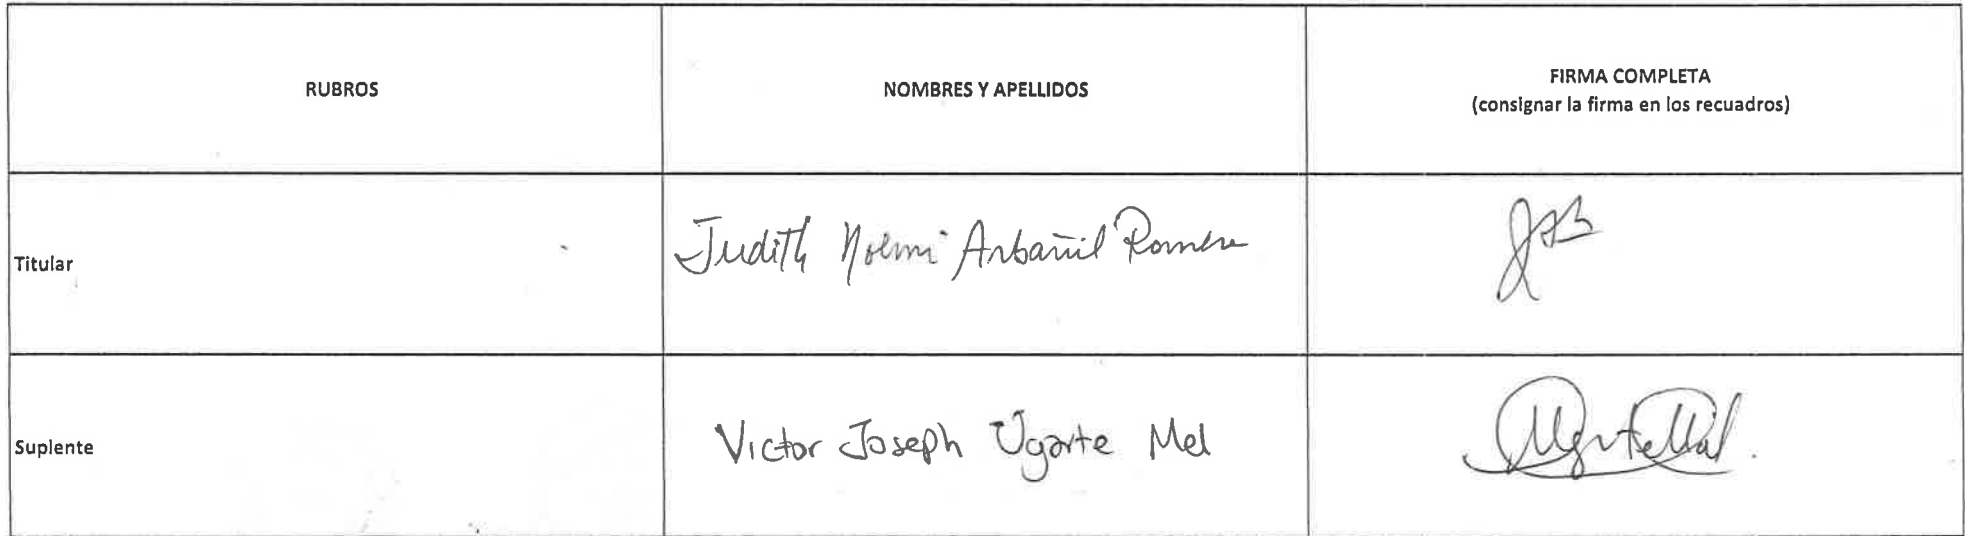 RUBROS
NOMBRES Y APELLIDOS
FIRMA COMPLETA
(consignar la firma en los recuadros)
Titular
Judith Noemi Arbañil Romero
Suplente
Victor Joseph Ugarte Mel